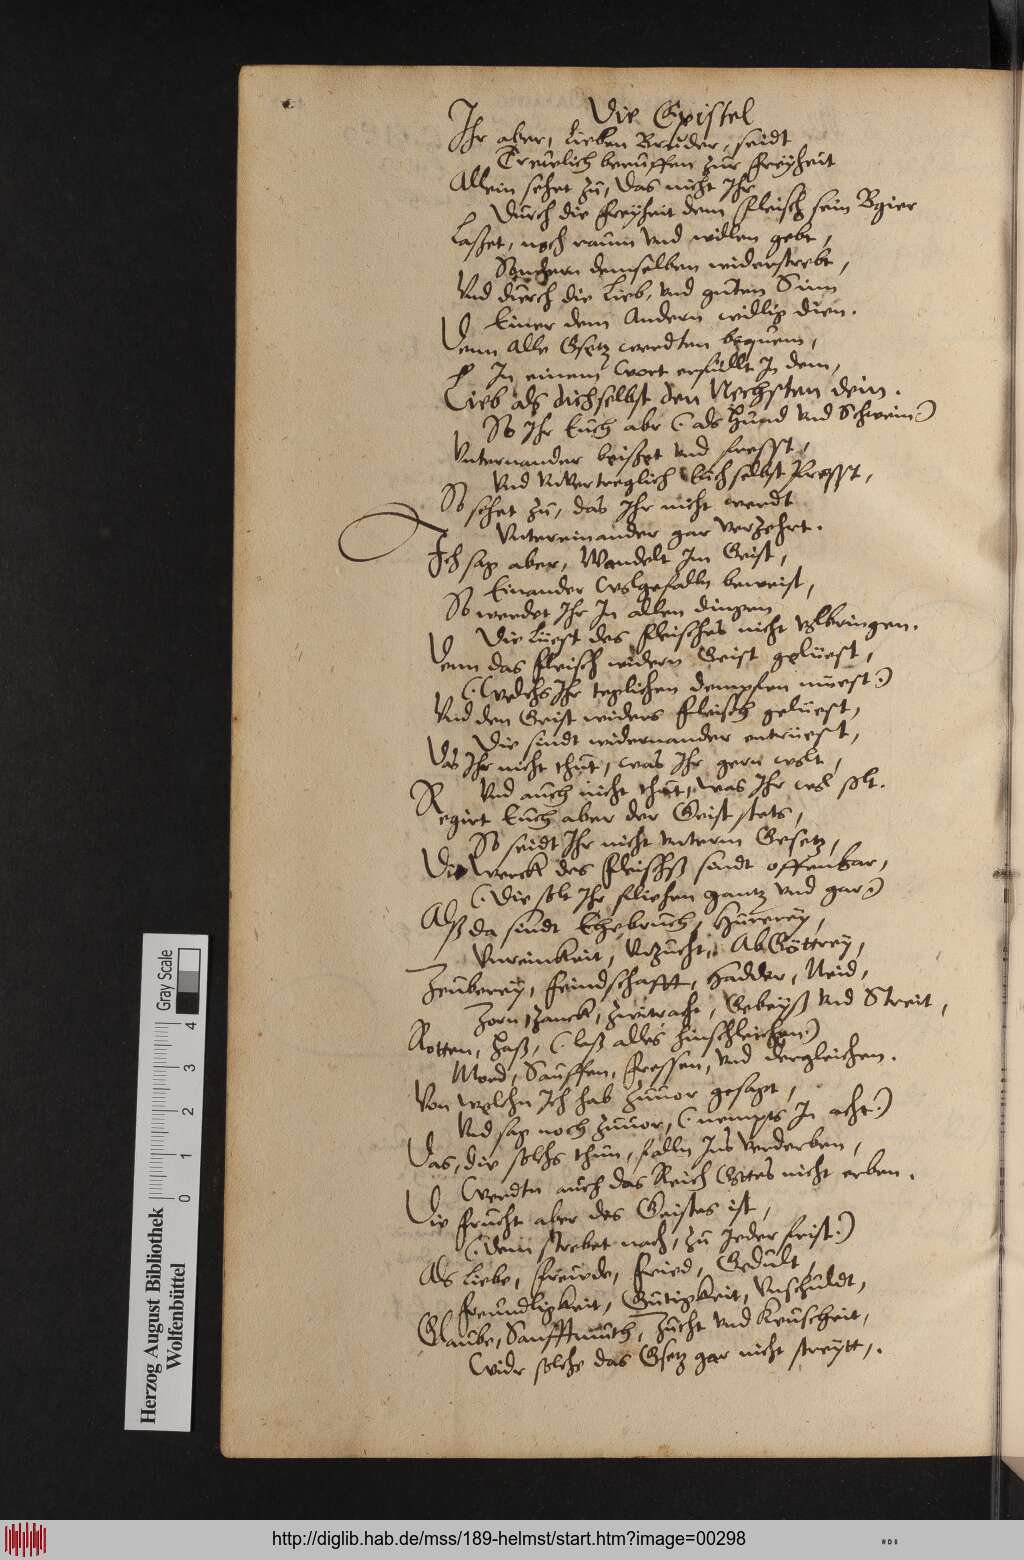 Die Epistel
Ihr aber, lieben Brüder, seidt
Treulich beruffen zur freyheit
Allein sehet zu, das nicht Ihr
Durch die freyheit dem fleisch sein Bgier
Laßet, noch raum vnd willen gebt,
Sondern demselben widerstrebt,
Vnd durch die Lieb, vnd guten Sinn
Einer dem Andern willig dien.
Denn Alle Gsetz werdten bequem,
In einem wort erfüllt In dem,
Lieb als dich selbst den Nechsten dein.
So Ihr Euch abr (als Hund vnd Schwein)
Vnternander beißet vnd fresst,
Vnd vnvertreglich Euch selbst
So sehet zu, das Ihr nicht werdt
Vntereinander gar verzehrt.
Ich sag aber, Wandelt Im Geist,
Einander wolgefalln beweist,
So werdet Ihr In allen dingen
Die Lüest des fleisches nicht volbringen.
Denn das fleisch widern Geist gelüest,
(Welchs Ihr teglichen dempfen müest)
Vnd den Geist widers fleisch gelüest,
Die sindt widernander entrüest,
Das Ihr nicht thut, was Ihr gern wolt,
Vnd auch nicht thut, was Ihr wol solt.
Regirt Euch aber der Geist stets,
So seidt Ihr nicht vnterm Gesetz,
Die Werck des fleischs sindt offenbar,
(Die solt Ihr fliehen gantz vnd gar)
Alß da sindt Ehebruch, Hurerey,
Vnreinkeit, Vnzucht, AbGöttrey,
Zeuberey, feindschafft, Hadder, Neid,
Zorn, Zanck, Zwitracht, Gebeyß vnd Streit,
Rotten, Haß, (laß alles hinschleichen)
Mord, Sauffen, fressen, vnd dergleichen.
Von Welchn Ich hab zuuor gesagt,
Vnd sag noch zuuor, (nempts In acht)
Das, die solchs thun, falln Ins Verderben,
Werdtn auch das Reich Gottes nicht erben.
Die frucht aber des Geistes ist,
(Dem strebet nach, zu Jeder frist)
Als Liebe, freude, fried, Gedult,
freundligkeit, Gutigkeit, Vnschuldt,
Glaube, Sanfftmuth, Zucht vnd Keuscheit,
Widr solche das Gsetz gar nicht streytt.
Gray Scale
0 1 2 3 4
Herzog August Bibliothek
Wolfenbüttel
http://diglib.hab.de/mss/189-helmst/start.htm?image=00298